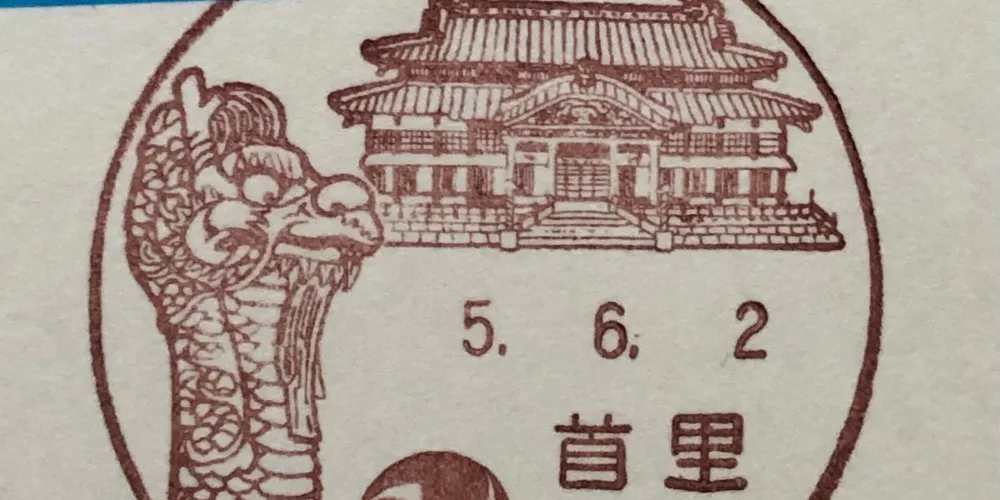 5. 6. 2
首里